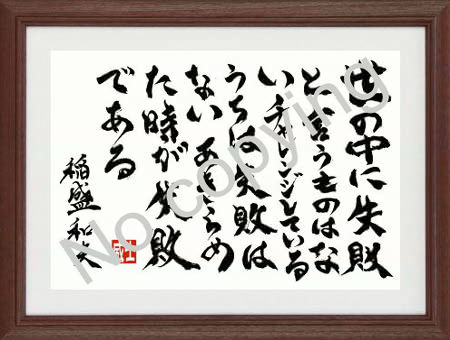 世の中に失敗
と言うものはな
い チャレンジしている
うちは失敗は
ない あきらめ
た時が失敗
である
稲盛和夫
No copying